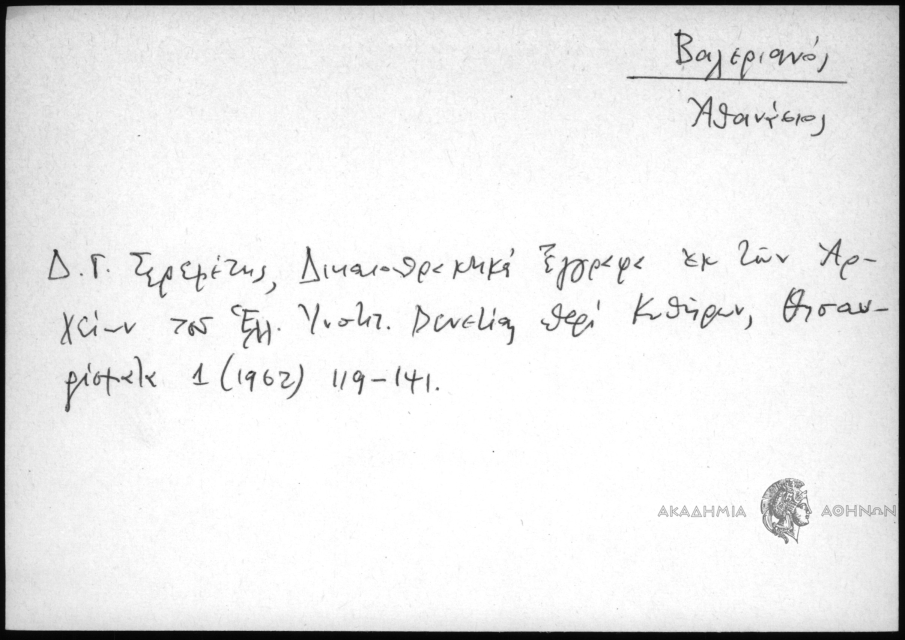 Βαλεριανός
Ἀθανάσιος
Δ. Γ. Σερεμέτης, Δικαιοπρακτικά Ἔγγραφα ἐκ τῶν Ἀρ-
χείων τοῦ Ἑλλ. Ἰνστιτ. Βενετίας περί Κυθήρων, Θησαυ-
ρίσματα 1 (1962) 119-141.
ΑΚΑΔΗΜΙΑ ΑΘΗΝΩΝ